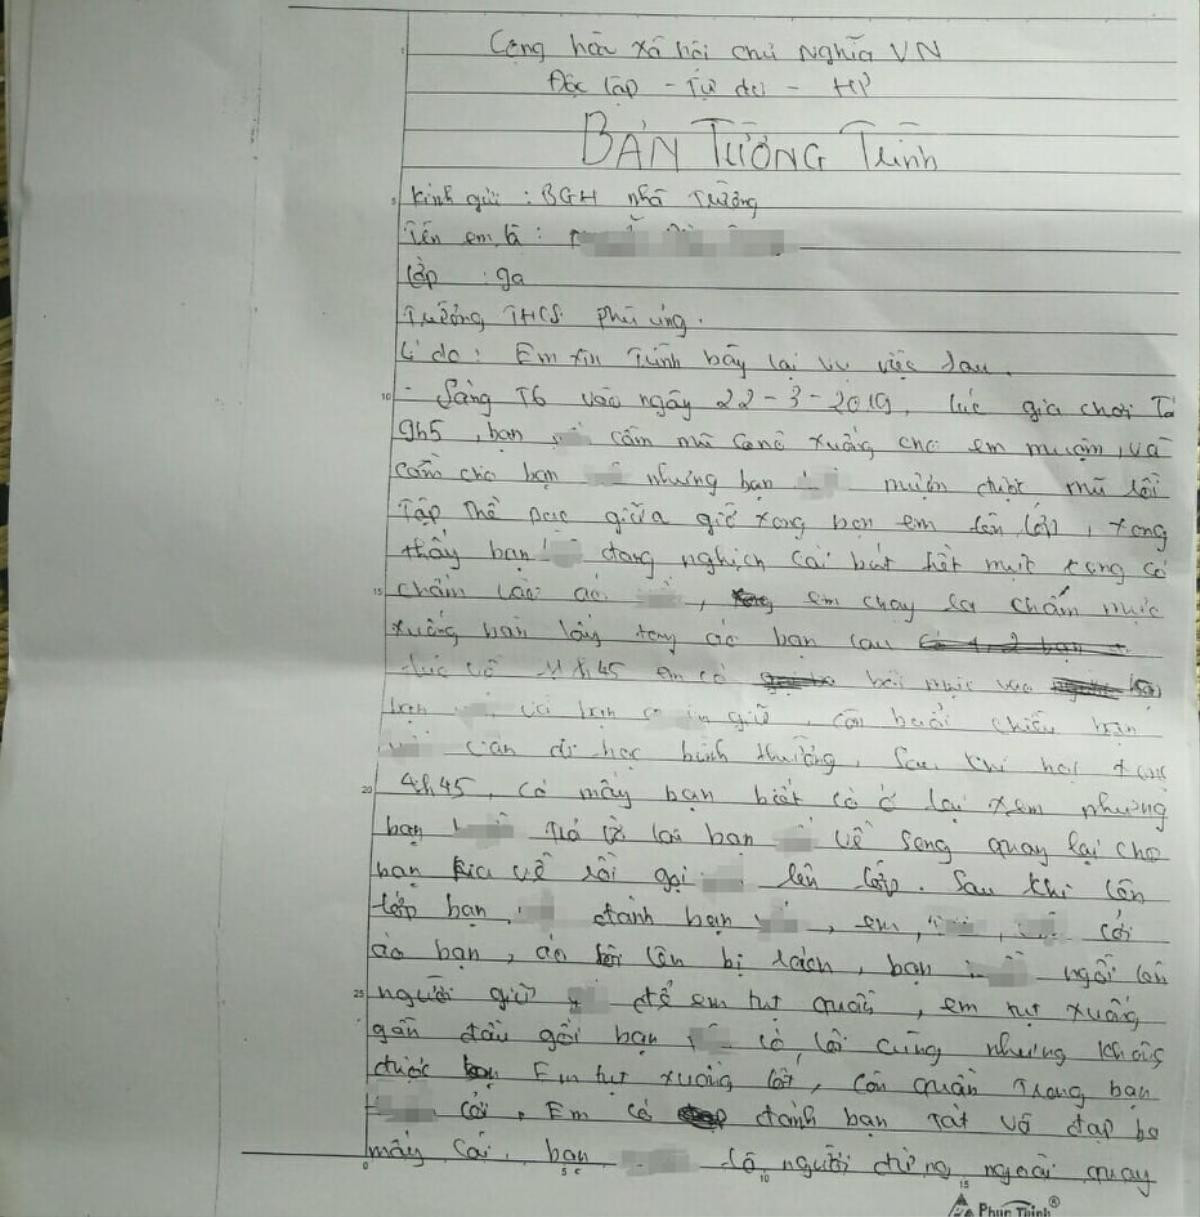 Cộng hòa xã hội chủ Nghĩa VN
Độc lập - Tự do - HP
BẢN TƯỜNG Trình
Kính gửi : BGH nhà Trường
Tên em là :
Lớp : 9a
Trường THCS Phù ủng.
Lí do : Em xin Trình bầy lại vụ việc sau.
- Sáng T6 vào ngày 22-3-2019, lúc giờ chơi Từ
9h5, bạn cầm mũ ca nô xuống cho em mượn, và
cầm cho bạn nhưng bạn mượn được mũ rồi
Tập thể dục giữa giờ xong bọn em lên lớp, xong
thấy bạn đang nghịch cái bút hết mực xong có
chấm vào áo, em chạy ra chấm mực
xuống bàn lấy tay áo bạn lau
lúc về 11h45 em có bôi mực vào
bạn giữ, còn buổi chiều bạn
vẫn đi học bình thường. Sau khi học xong
4h45, có mấy bạn biết có ở lại xem nhưng
bạn Trả lời bạn về song quay lại cho
bạn kia về rồi gọi lên lớp. Sau khi lên
lớp bạn đánh bạn, em, cởi
áo bạn, áo lên bị rách, bạn ngồi lên
người giữ để em tụt quần, em tụt xuống
gần đầu gối bạn có lôi cũng nhưng không
được Em tụt xuống, còn quần Trong bạn
cởi. Em có đánh bạn Tát và đạp ba
mấy cái, bạn là người đứng ngoài quay
0 5 c 10 15
5
10
15
20
25
Phúc Thịnh®